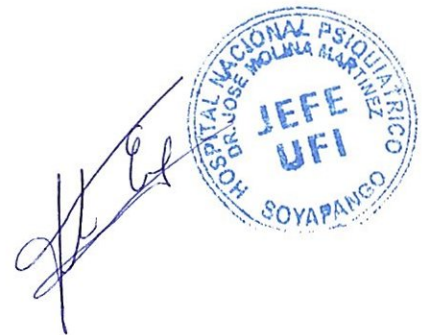 HOSPITAL NACIONAL PSIQUIATRICO
DR. JOSE MOLINA MARTINEZ
JEFE
UFI
SOYAPANGO